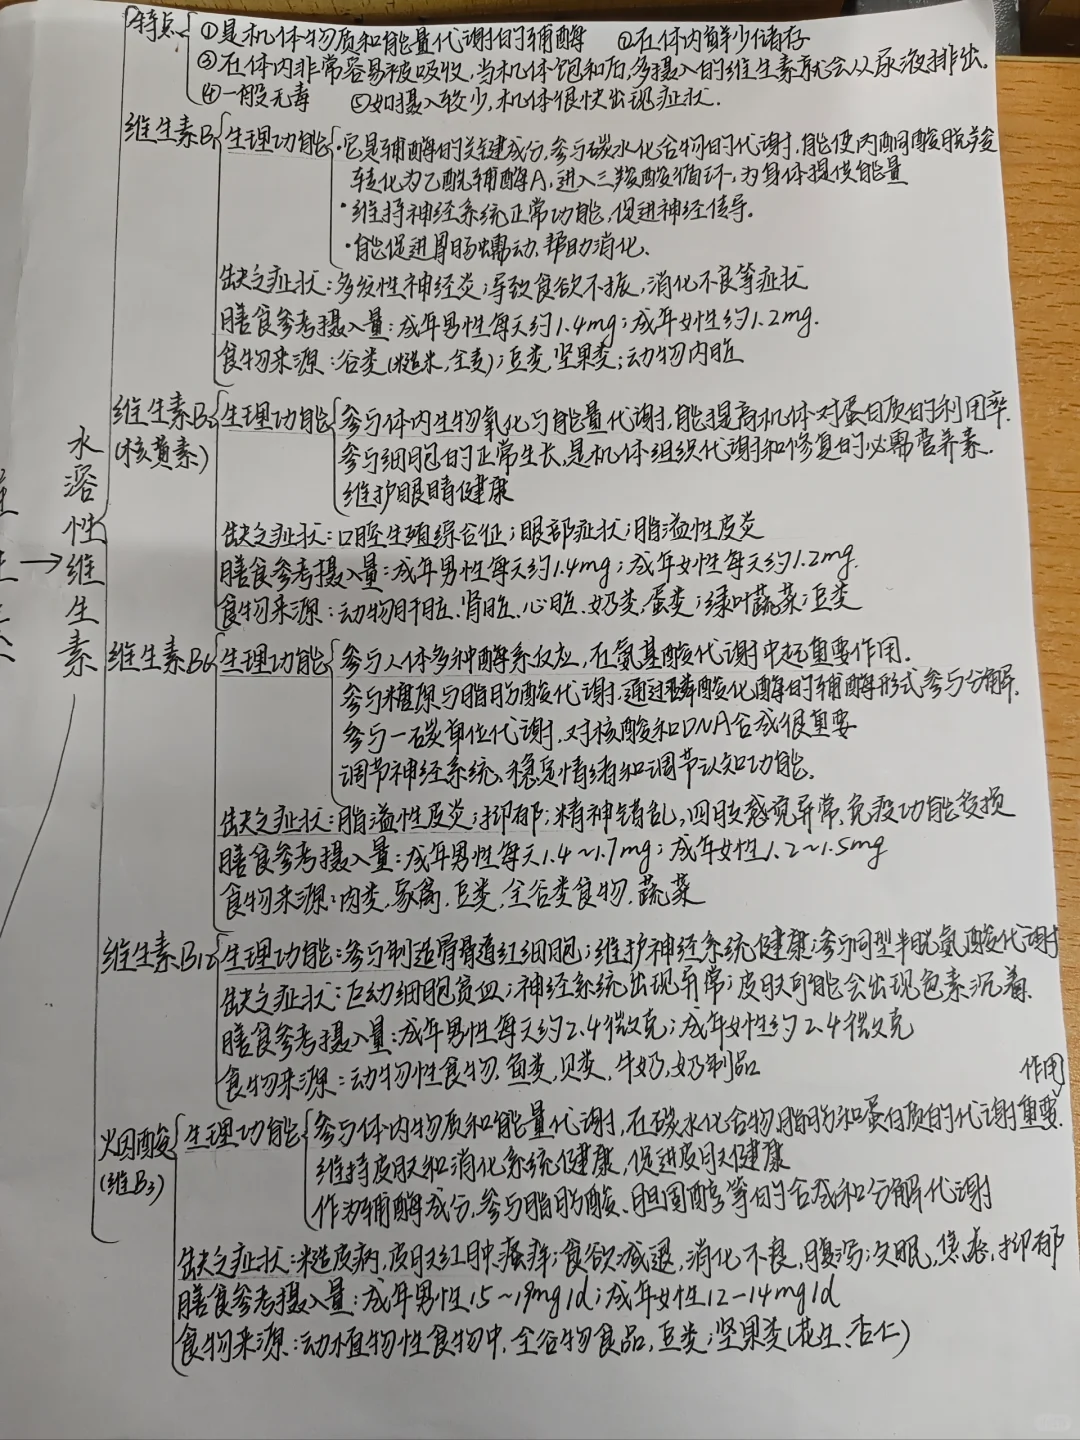 特点 ①是机体物质和能量代谢的辅酶 ②在体内鲜少储存
③在体内非常容易被吸收,当机体饱和后,多摄入的维生素就会从尿液排出.
④一般无毒 ⑤如摄入较少,机体很快出现症状.
维生素B₁ 生理功能 ·它是辅酶的关键成分,参与碳水化合物的代谢,能使丙酮酸脱羧
转化为乙酰辅酶A,进入三羧酸循环,为身体提供能量
·维持神经系统正常功能,促进神经传导.
·能促进胃肠蠕动,帮助消化.
缺乏症状:多发性神经炎;导致食欲不振,消化不良等症状
膳食参考摄入量:成年男性每天约1.4mg;成年女性约1.2mg.
食物来源:谷类(糙米,全麦);豆类,坚果类;动物内脏
维生素B₂ 生理功能 参与体内生物氧化与能量代谢,能提高机体对蛋白质的利用率.
(核黄素) 参与细胞的正常生长,是机体组织代谢和修复的必需营养素.
维护眼睛健康
缺乏症状:口腔生殖综合征;眼部症状;脂溢性皮炎
膳食参考摄入量:成年男性每天约1.4mg;成年女性每天约1.2mg.
食物来源:动物肝脏、肾脏、心脏、奶类、蛋类;绿叶蔬菜;豆类
水溶性维生素
维生素B6 生理功能 参与人体多种酶系反应,在氨基酸代谢中起重要作用.
参与糖原与脂肪酸代谢,通过磷酸化酶的辅酶形式参与分解.
参与一碳单位代谢,对核酸和DNA合成很重要
调节神经系统、稳定情绪和调节认知功能.
缺乏症状:脂溢性皮炎;抑郁;精神错乱,四肢感觉异常,免疫功能受损
膳食参考摄入量:成年男性每天1.4~1.7mg;成年女性1.2~1.5mg
食物来源:肉类,家禽,豆类,全谷类食物,蔬菜
维生素B12 生理功能:参与制造骨髓红细胞;维护神经系统健康;参与同型半胱氨酸代谢
缺乏症状:巨幼细胞贫血;神经系统出现异常;皮肤可能会出现色素沉着.
膳食参考摄入量:成年男性每天约2.4微克;成年女性约2.4微克
食物来源:动物性食物,鱼类,贝类,牛奶,奶制品
作用
烟酸 生理功能 参与体内物质和能量代谢,在碳水化合物、脂肪和蛋白质的代谢重要.
(维B3) 维持皮肤和消化系统健康,促进皮肤健康
作为辅酶成分,参与脂肪酸、胆固醇等的合成和分解代谢
缺乏症状:糙皮病,皮肤红肿、瘙痒;食欲减退,消化不良,腹泻;失眠,焦虑,抑郁
膳食参考摄入量:成年男性15~19mg/d;成年女性12-14mg/d
食物来源:动植物性食物中,全谷物食品,豆类;坚果类(花生、杏仁)